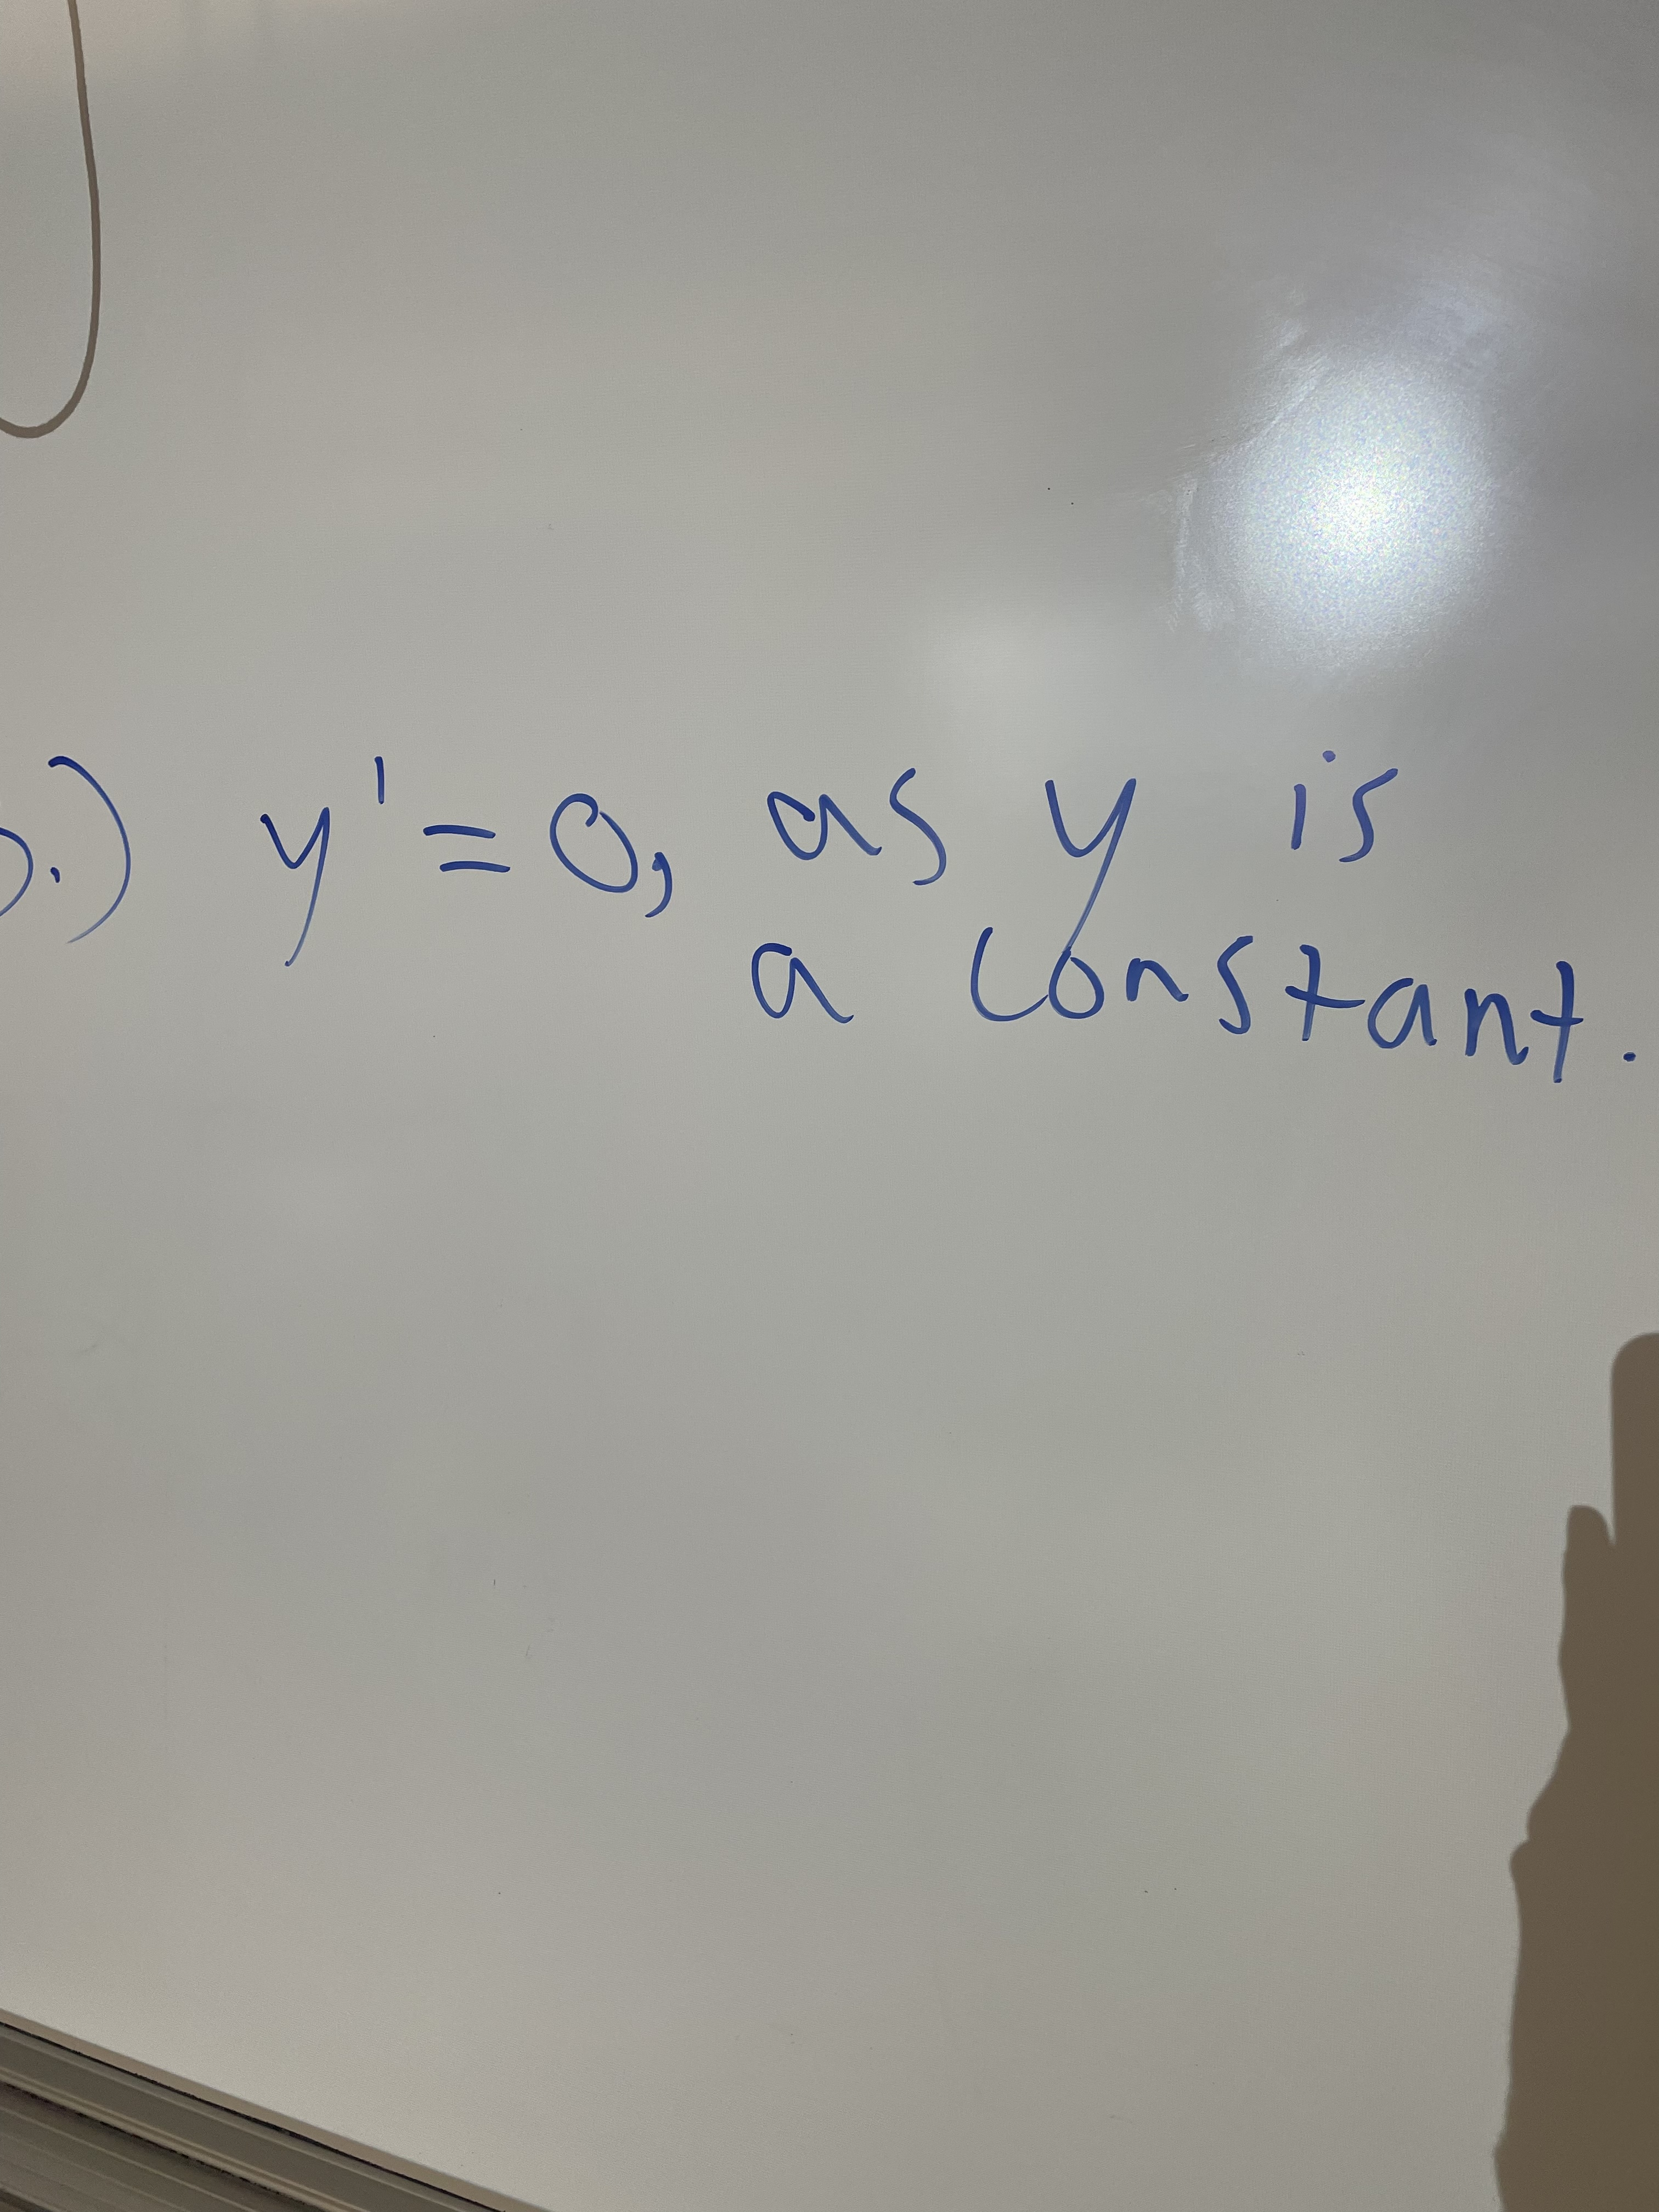 b.) y' = 0, as y is
a constant.